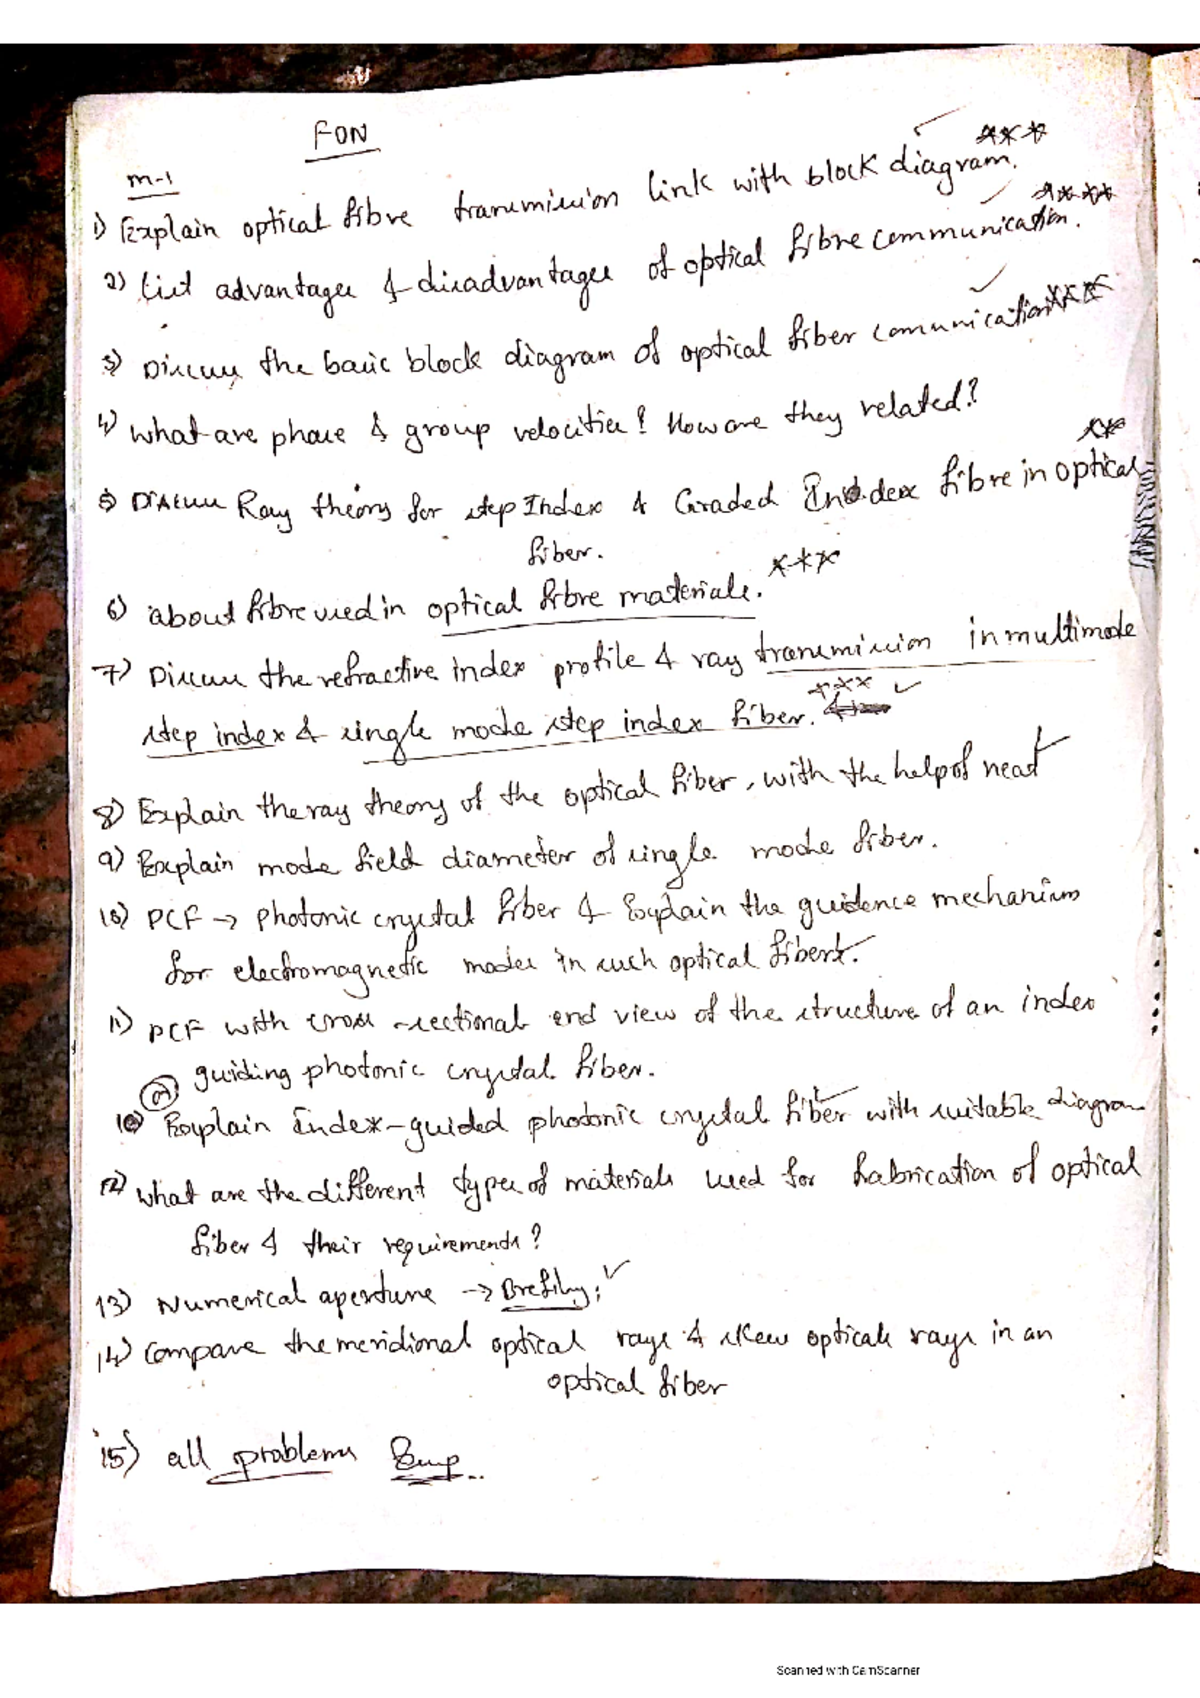 FON
m-1
1) Explain optical fibre transmission link with block diagram. ***
2) List advantages & disadvantages of optical fibre communication. ****
3) Discuss the basic block diagram of optical fiber comunication ***
4) what are phase & group velocities? How are they related?
5) Discuss Ray theory for step Index & Graded Index fibre in optical **
fiber.
6) about fibre used in optical fibre materials. ***
7) Discuss the refractive index profile & ray transmission in multimode
step index & single mode step index fiber. ***
8) Explain the ray theory of the optical fiber, with the help of neat
9) Explain mode field diameter of single mode fiber.
10) PCF → photonic crystal fiber & Explain the guidence mechanism
for electromagnetic modes in such optical fibers.
11) PCF with cross-sectional end view of the structure of an index
guiding photonic crystal fiber.
10) Explain Index-guided photonic crystal fiber with suitable diagram
12) what are the different types of materials used for fabrication of optical
fiber & their requirements?
13) Numerical aperture → Brefily;
14) Compare the meridional optical rays & skew optical rays in an
optical fiber
15) all problems
Scanned with CamScanner